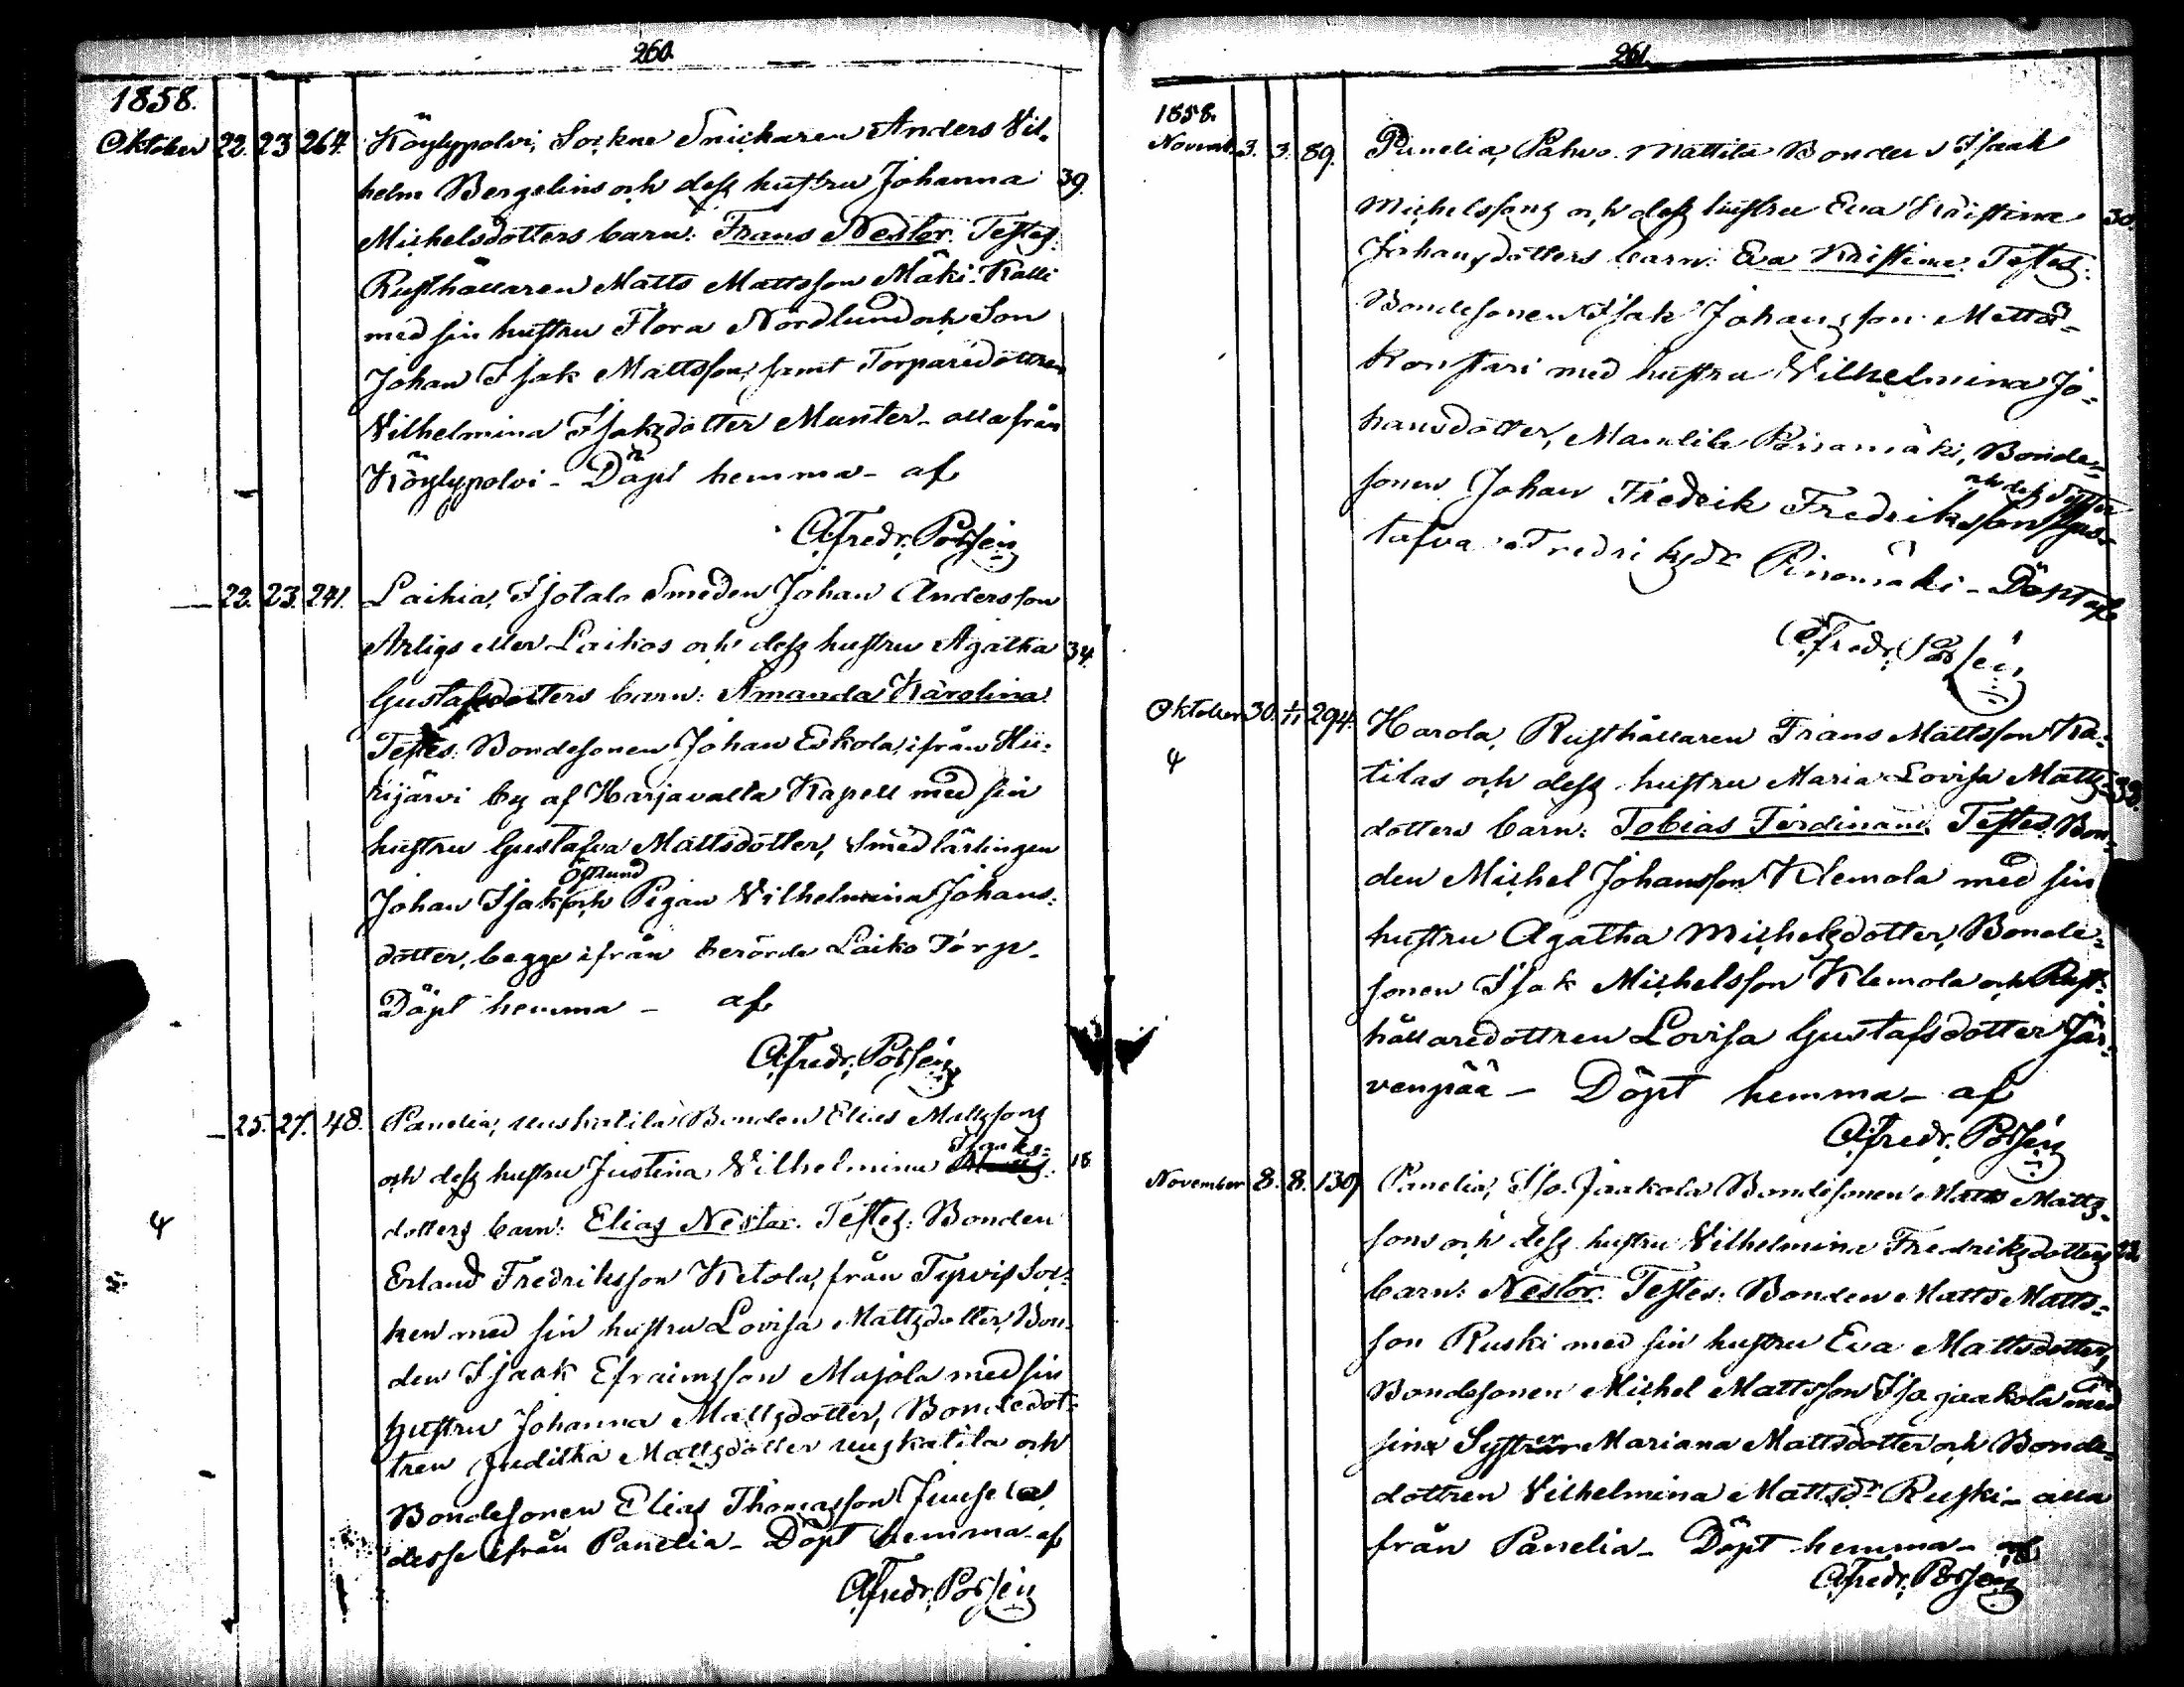 260.
1858.
Oktober 22. 23 264. Köylypolvi, Sockne Snickaren Anders Vil-
helm Bergelins och dess hustru Johanna 39.
Michelsdotters barn: Frans Nestor. Testes:
Rusthållaren Matts Mattsson Mäki-Kalli
med sin hustru Flora Nordlund och Son
Johan Isak Mattsson, samt Torparedottren
Vilhelmina Isaksdotter Munter - alla från
Köylypolvi - Döpt hemma - af
A. Fredr. Possén
— 22. 23. 241. Laihia, Isotalo Smeden Johan Andersson
Arligs eller Laikos och dess hustru Agatha 34
Gustafsdotters barn: Amanda Karolina
Testes: Bondesonen Johan Eskola, ifrån Hii-
rijärvi by af Harjavalta Kapell med sin
hustru Gustafva Mattsdotter, Smedlärlingen
Östlund
Johan Isak och Pigan Vilhelmina Johans-
dotter, begge ifrån berörde Laiko Torp.
Döpt hemma - af
A. Fredr. Possén
— 25. 27. 48. Panelia, Uuskatila Bonden Elias Mattssons
Isaaks-
och dess hustru Justina Vilhelmina 18
dotters barn: Elias Nestor. Testes: Bonden
Erland Fredriksson Ketola, från Tyrvis Soc-
ken med sin hustru Lovisa Mattsdotter, Bon-
den Isaak Efraimsson Majola med sin
hustru Johanna Mattsdotter, Bondedot-
tren Juditha Mattsdotter Uuskatila och
Bondesonen Elias Thomasson Juusela,
desse ifrån Panelia - Döpt hemma - af
A. Fredr. Possén
261.
1858.
Novemb. 3. 3. 89. Panelia, Pahus Mattila Bonden Isaak
Michelssons och dess hustru Eva Kristina 30.
Johansdotters barn: Eva Kristina. Testes:
Bondesonen Isak Johansson Mattä-
Konstari med hustru Vilhelmina Jo-
hansdotter, Mannila Bonde-
och dess Syster
sonen Johan Fredrik Fredriksson Gus-
tafva Fredriksdr - Döpt af
A. Fredr. Possén
Oktober 30. 1/11 294. Harola, Rusthållaren Frans Mattsson Ka-
tilas och dess hustru Maria Lovisa Matts- 33.
dotters barn: Tobias Ferdinand. Testes: Bon-
den Michel Johansson Klemola med sin
hustru Agatha Michelsdotter, Bonde-
sonen Isak Michelsson Klemola och Rust-
hållaredottren Lovisa Gustafsdotter Jär-
venpää - Döpt hemma - af
A. Fredr. Possén
November 8. 8. 139 Panelia, Iso-Jaakola Bondesonen Matts Matts-
sons och dess hustru Vilhelmina Fredriksdotters 22.
barn: Nestor. Testes: Bonden Matts Matts-
son Ruski med sin hustru Eva Mattsdotter,
Bondesonen Michel Mattsson Iso jaakola med
sin Syster Mariana Mattsdotter och Bonde-
dottren Vilhelmina Mattsdr Ruski - alla
från Panelia - Döpt hemma - af
A. Fredr. Possén